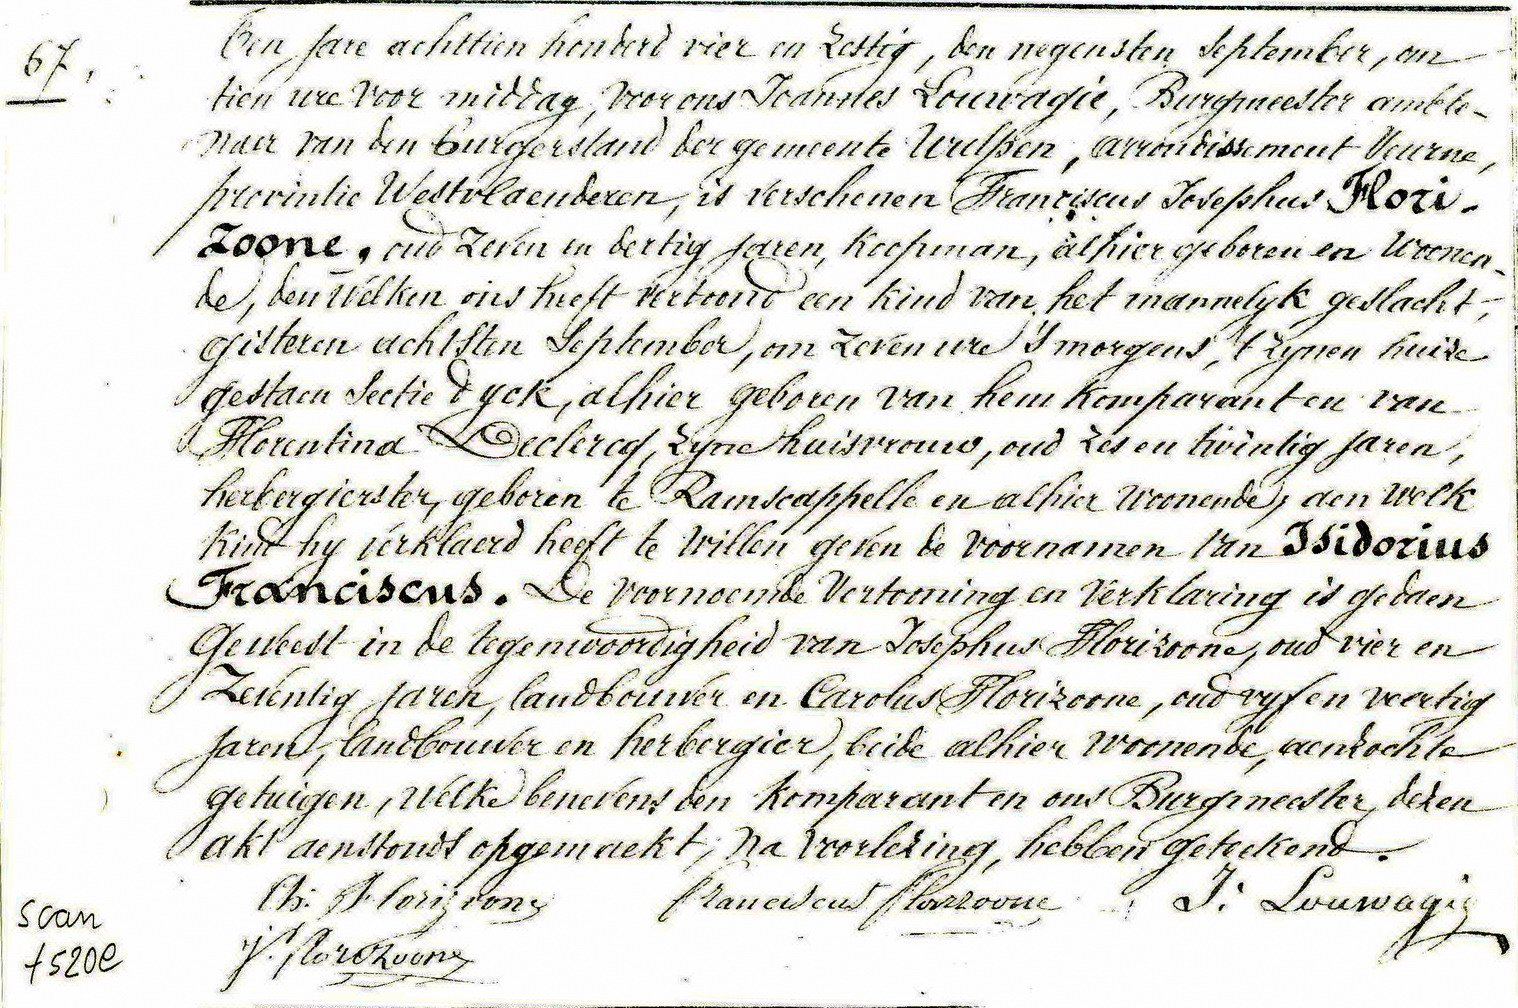 67.
Een jare achttien honderd vier en zestig, den negensten September, om
tien ure voor middag, voor ons Joannes Louwagie, Burgmeester ambte-
naer van den burgerstand der gemeente Wulpen, arrondissement Veurne,
provintie Westvlaenderen, is verschenen Franciscus Josephus Flori-
zoone, oud zeven en dertig jaren, koopman, alhier geboren en woonen-
de, den welken ons heeft vertoond een kind van het mannelyk geslacht,
gisteren achtsten September, om zeven ure 's morgens, 't zynen huize
gestaen sectie dyck, alhier geboren van hem komparant en van
Florentina Declercq, zyne huisvrouw, oud zes en twintig jaren,
herbergierster, geboren te Ramscappelle en alhier woonende, aen welk
kind hy verklaerd heeft te willen geven de voornamen van Isidorius
Franciscus. De voornoemde vertooning en verklaring is gedaen
geweest in de tegenwoordigheid van Josephus Florizoone, oud vier en
zeventig jaren, landbouwer en Carolus Florizoone, oud vyf en veertig
jaren, landbouwer en herbergier, beide alhier woonende, aenzochte
getuigen, welke benevens den komparant en ons Burgmeester, dezen
akt aenstonds opgemaekt, na voorlezing, hebben geteekend.
Ch. Florizoone Franciscus Florizoone J. Louwagie
J. Florizoone
scan
t520e